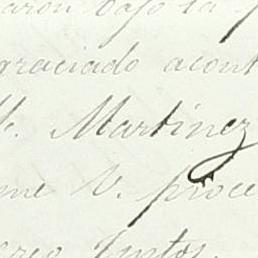 bajo la
graciado acont
V. Martinez
me V. proce
Juntos.